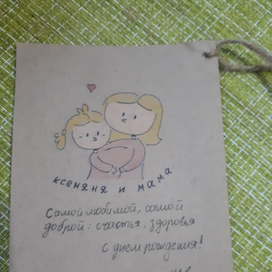 ксеняня и мама
Самой любимой, самой
доброй: счастья, здоровья
с днем рождения!